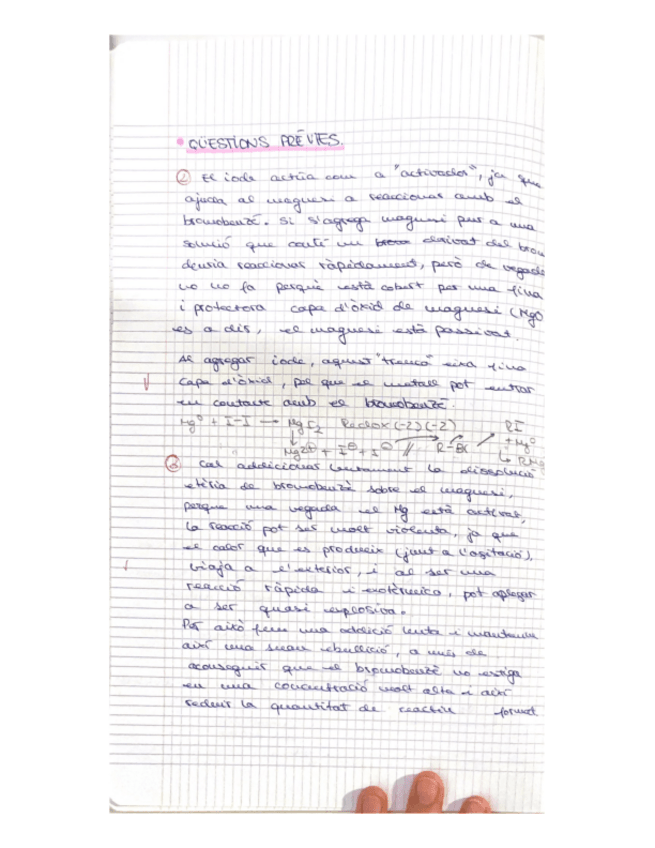 • QÜESTIONS PRÈVIES.
② El iode actúa com a "activador", ja que
ajuda al magnesi a reaccionar amb el
bromobenzé. Si s'agrega magnesi pur a una
solució que conté un derivat del brom
deuria reaccionar ràpidament, però de vegades
no ho fa perquè està cobert per una fina
i protectora capa d'òxid de magnesi (MgO
es a dir, el magnesi està passivat.
Al agregar iode, aquest "trenca" eixa fina
capa d'òxid, pel que el metall pot entrar
en contacte amb el bromobenzé.
Mg⁰ + I-I → MgI₂ Redox (-2)(-2) RI
↓ Mg2+ + I⊖ + I⊖ // R-BX + Mg⁰
↳ RMg
Cal addicionar lentament la dissolució
etèria de bromobenzè sobre el magnesi,
perque una vegada el Mg està activat,
la reacció pot ser molt violenta, ja que
el calor que es produeix (junt a l'agitació),
viaja a l'exterior, i al ser una
reacció ràpida i exotèrmica, pot aplegar
a ser quasi explosiva.
Per això fem una addició lenta i mantenim
així una suau ebullició, a més de
aconseguir que el bromobenzè no estiga
en una concentració molt alta i així
reduir la quantitat de reactiu format.